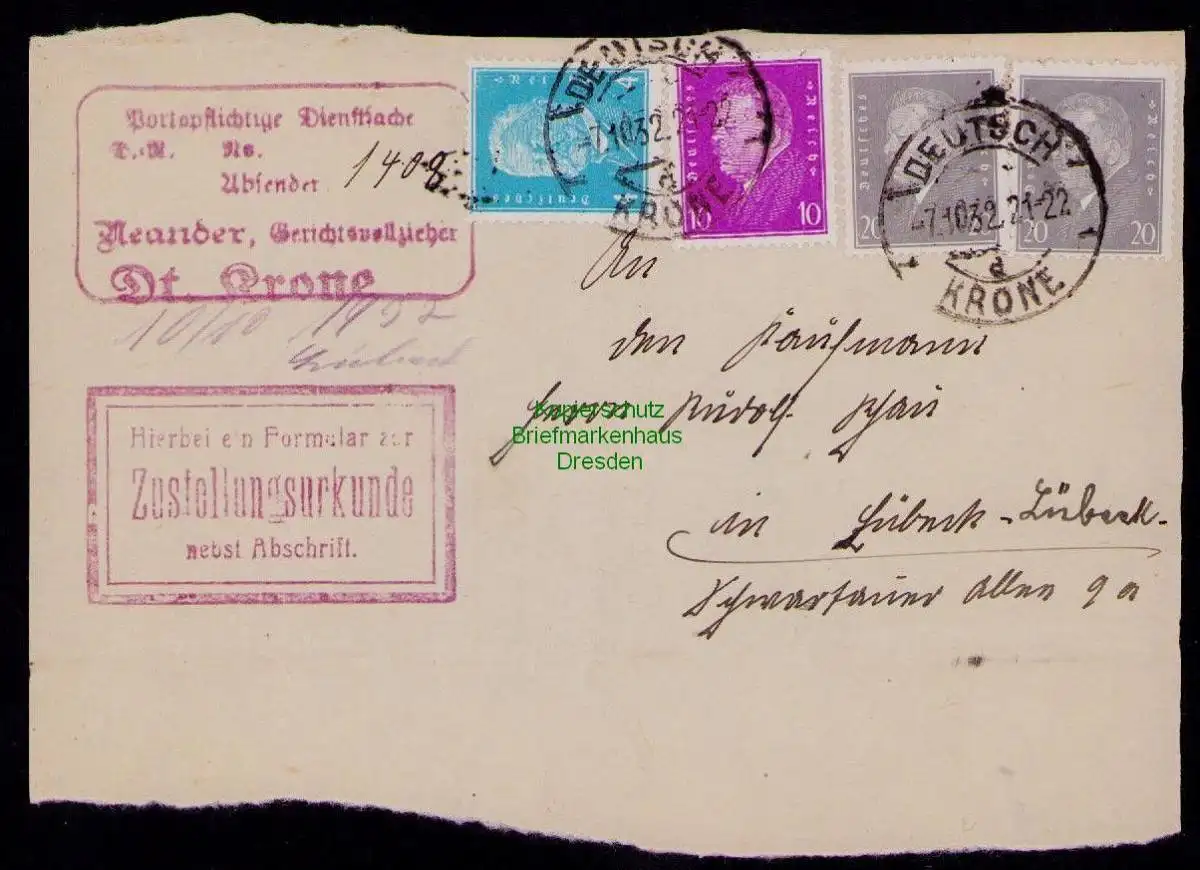 Portopflichtige Dienstsache
D.-R. No. 1408
Absender
Neander, Gerichtsvollzieher
Dt. Krone
10/10 1932
Lübeck
Hierbei ein Formular zur
Zustellungsurkunde
nebst Abschrift.
4
Deutsches Reich
DEUTSCH
-7.10.32.21-22
a
KRONE
10 10
Deutsches Reich
20
Deutsches Reich
20 20
Reich
DEUTSCH
-7.10.32.21-22
d
KRONE
An
den Kaufmann
Herrn Rudolf Schau
in Lübeck - Lübeck -
Schwartauer Allee 9a
Kopierschutz
Briefmarkenhaus
Dresden